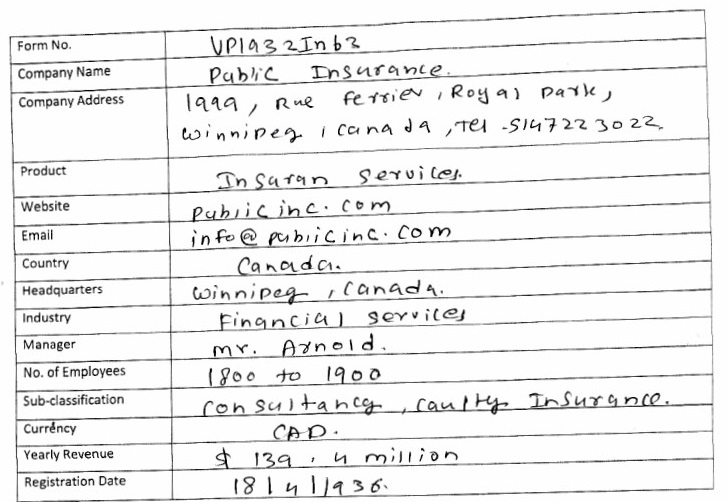 Form No. VP1932Inb3
Company Name Public Insurance.
Company Address 1999, Rue ferrier, Royal Park,
Winnipeg, Canada, Tel -5147223022.
Product Insuran Services.
Website publicinc.com
Email info@publicinc.com
Country Canada.
Headquarters Winnipeg, Canada.
Industry Financial Services
Manager mr. Arnold.
No. of Employees 1800 to 1900
Sub-classification Consultancy, Caulty Insurance.
Currency CAD.
Yearly Revenue $ 139.4 million
Registration Date 18/4/1936.